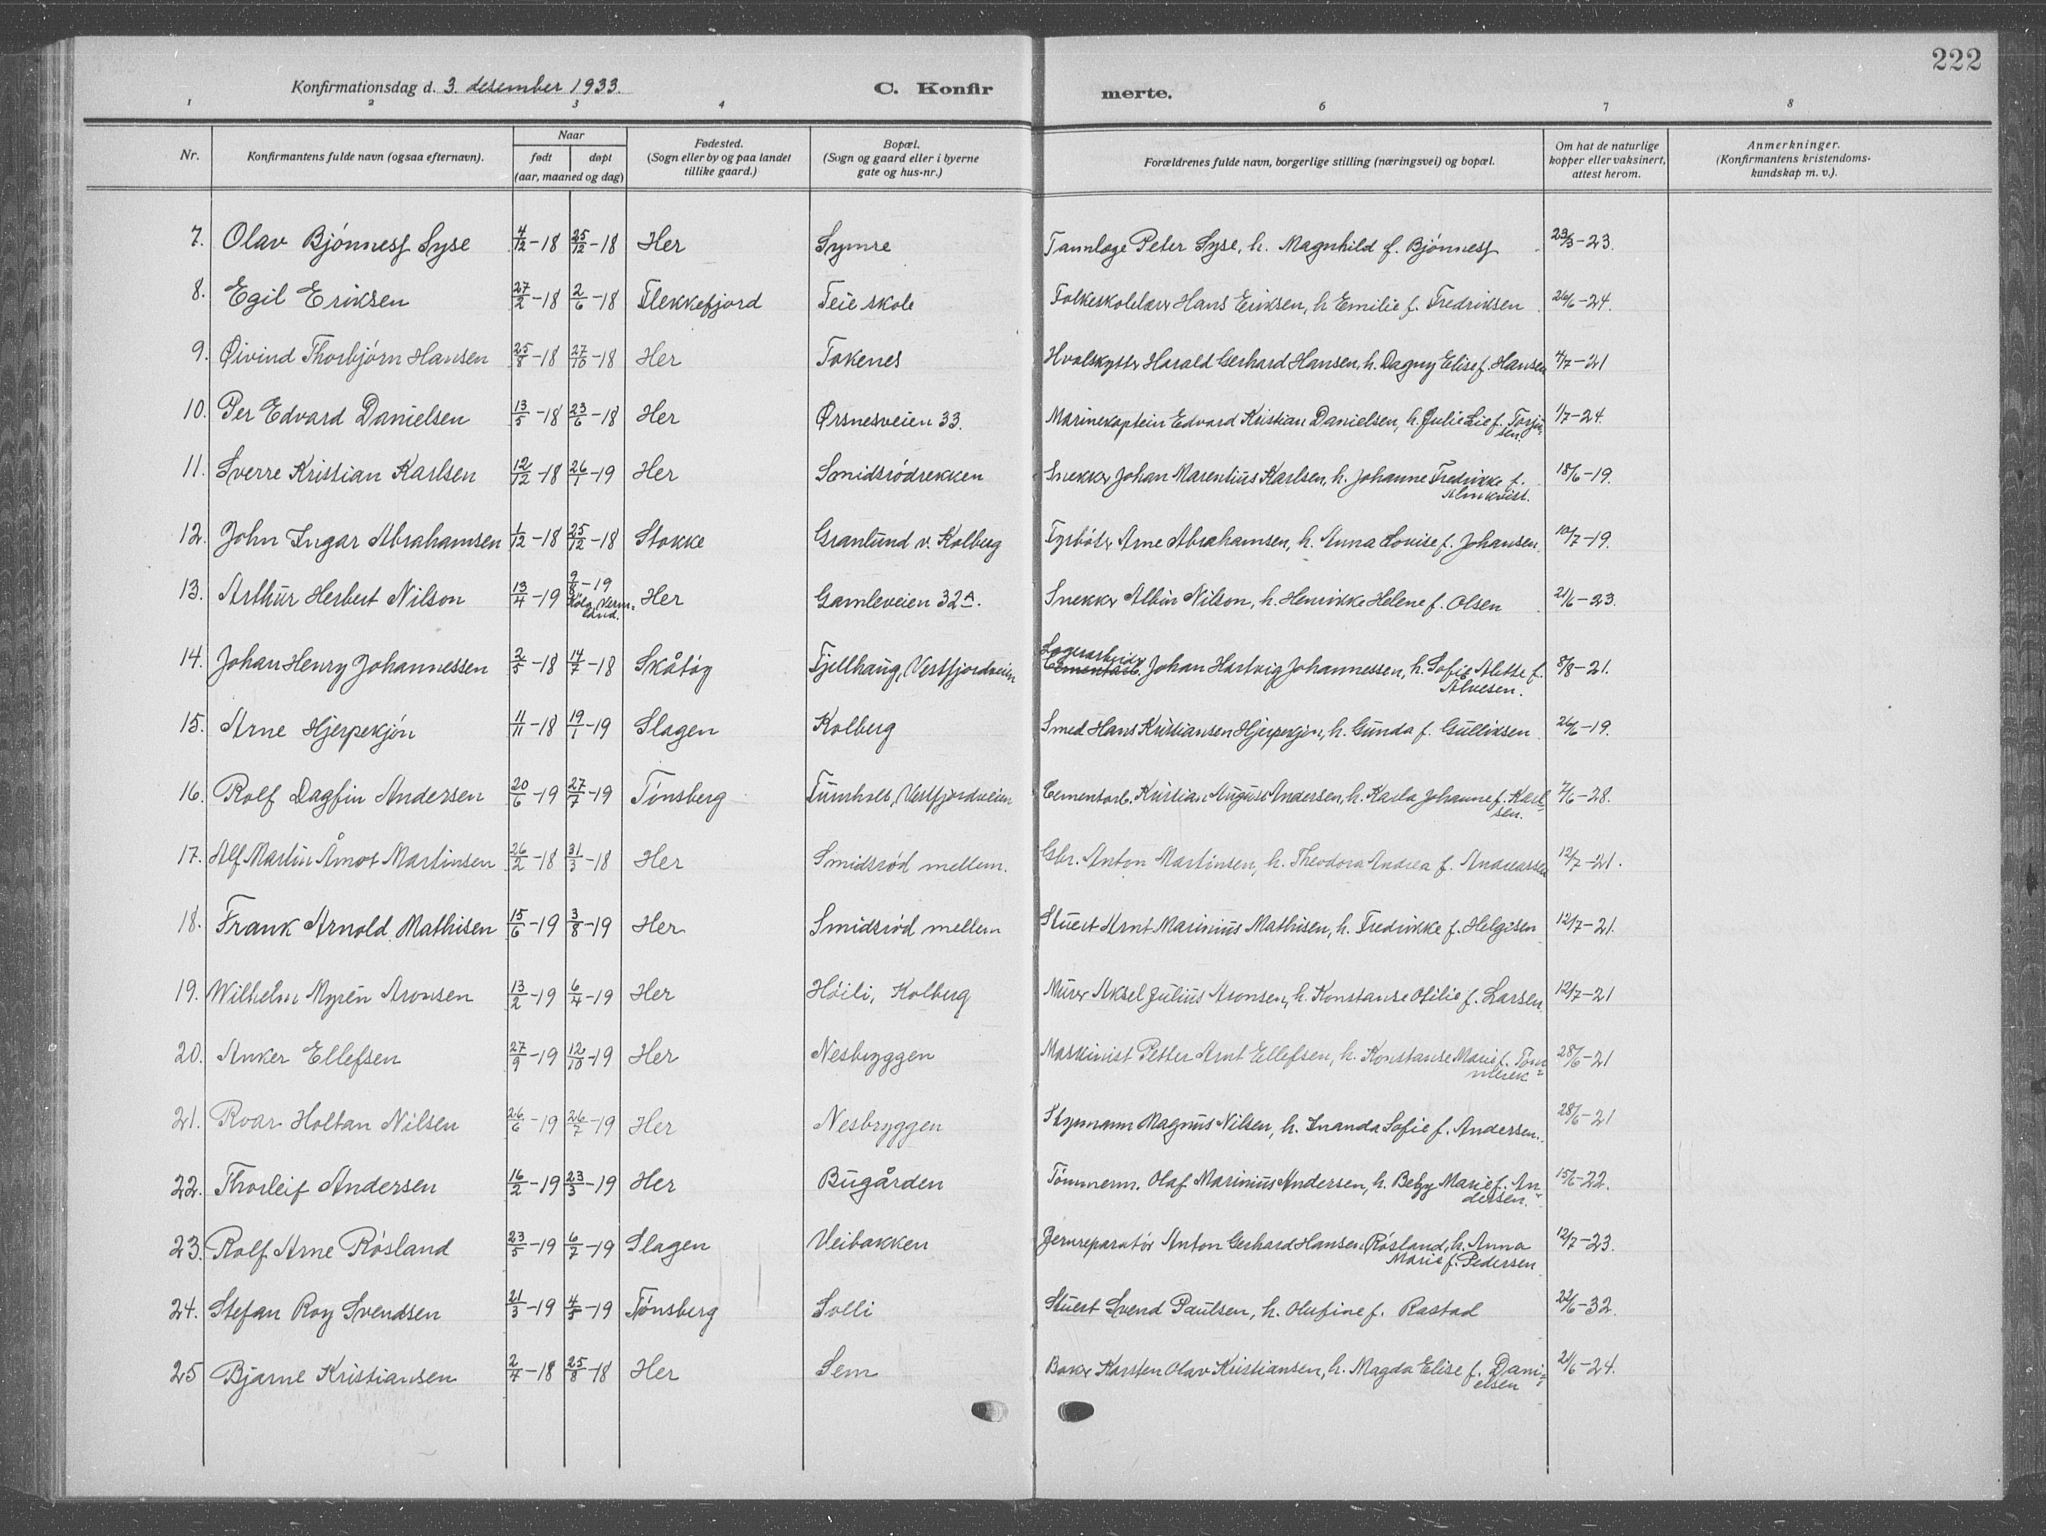 222
Konfirmationsdag d. 3. desember 1933. C. Konfirmerte.
1 2 3 4 6 7 8
Nr. Konfirmantens fulde navn (ogsaa efternavn). Naar født døpt (aar, maaned og dag) Fødested. (Sogn eller by og paa landet tillike gaard.) Bopæl. (Sogn og gaard eller i byerne gate og hus-nr.) Forældrenes fulde navn, borgerlige stilling (næringsvei) og bopæl. Om hat de naturlige kopper eller vaksinert, attest herom. Anmerkninger. (Konfirmantens kristendoms-kundskap m. v.).
7. Olav Bjønnes Syse 4/12-18 25/12-18 Her Symre Tannlæge Peter Syse, h. Magnhild f. Bjønnes 23/3-23.
8. Egil Eriksen 27/2-18 2/6-18 Flekkefjord Teie skole Folkeskolelærer Hans Eriksen, h Emilie f. Fredriksen 26/6-24.
9. Øivind Thorbjørn Hansen 25/8-18 27/10-18 Her Tokenes Hvalskytter Harald Gerhard Hansen, h. Dagny Elise f. Hansen 4/7-21
10. Per Edvard Danielsen 13/5-18 23/6-18 Her Ørsnesveien 33. Marinekaptein Edvard Kristian Danielsen, h. Julie Lie f. Torjusen. 1/7-24.
11. Sverre Kristian Karlsen 12/12-18 26/1-19 Her Smidsrødrekken Snekker Johan Marentius Karlsen, h. Johanne Fredrikke f. Almkvist. 18/6-19.
12. John Ingar Abrahamsen 1/12-18 25/12-18 Stokke Granlund v. Kolberg Fyrbøter Arne Abrahamsen, h. Anna Lovise f. Johansen. 10/7-19.
13. Arthur Herbert Nilson 13/4-19 9/6-19 Köla, Vermland. Her Gamleveien 32A. Snekker Albin Nilson, h. Henrikke Helene f. Olsen 21/6-23.
14. Johan Henry Johannessen 2/5-18 14/7-18 Skåtøy Fjellhaug, Vestfjordveien Lagerarbeider Cementarb. Johan Hartvig Johannessen, h. Sofie Alette f. Alvesen. 8/8-21.
15. Arne Hjerpekjøn 11/11-18 19/1-19 Slagen Kolberg Smed Hans Kristiansen Hjerpekjøn, h. Gunda f. Gulliksen 26/6-19.
16. Rolf Dagfin Andersen 20/6-19 27/7-19 Tønsberg Furuholt, Vestfjordveien Cementarb. Kristian August Andersen, h. Karla Johanne f. Karlsen. 7/6-28.
17. Alf Martin Åmot Martinsen 26/2-18 31/3-18 Her Smidsrød mellem. Gbr. Anton Martinsen, h. Theodora Andrea f. Andreassen 12/7-21.
18. Frank Arnold Mathisen 15/6-19 3/8-19 Her Smidsrød mellem Stuert Arnt Marinius Mathisen, h. Fredrikke f. Helgesen 12/7-21.
19. Wilhelm Myrén Aronsen 13/2-19 6/4-19 Her Høili, Kolberg Murer Aksel Julius Aronsen, h. Konstanse Otilie f. Larsen 12/7-21
20. Anker Ellefsen 27/9-19 12/10-19 Her Nesbryggen Maskinist Petter Arnt Ellefsen, h. Konstanse Marie f. 28/6-21
21. Roar Holtan Nilsen 26/6-19 26/7-19 Her Nesbryggen Styrmann Magnus Nilsen, h. Inanda Sofie f. Andersen. 28/6-21
22. Thorleif Andersen 16/2-19 23/3-19 Her Bugården Tømmerm. Olaf Marinius Andersen, h. Marie f. Andersen. 15/6-22.
23. Rolf Arne Røsland 23/5-19 6/7-19 Slagen Veibakken Jernreparatør Anton Gerhard Hansen Røsland, h. Anna Marie f. Pedersen 12/7-23.
24. Stefan Roy Svendsen 21/3-19 4/5-19 Tønsberg Solli Stuert Svend Paulsen, h. Olufine f. Rastad 22/6-32.
25 Bjarne Kristiansen 2/7-18 25/8-18 Her Sem Baker Karsten Olav Kristiansen, h. Magda Elise f. Danielsen 21/6-24.